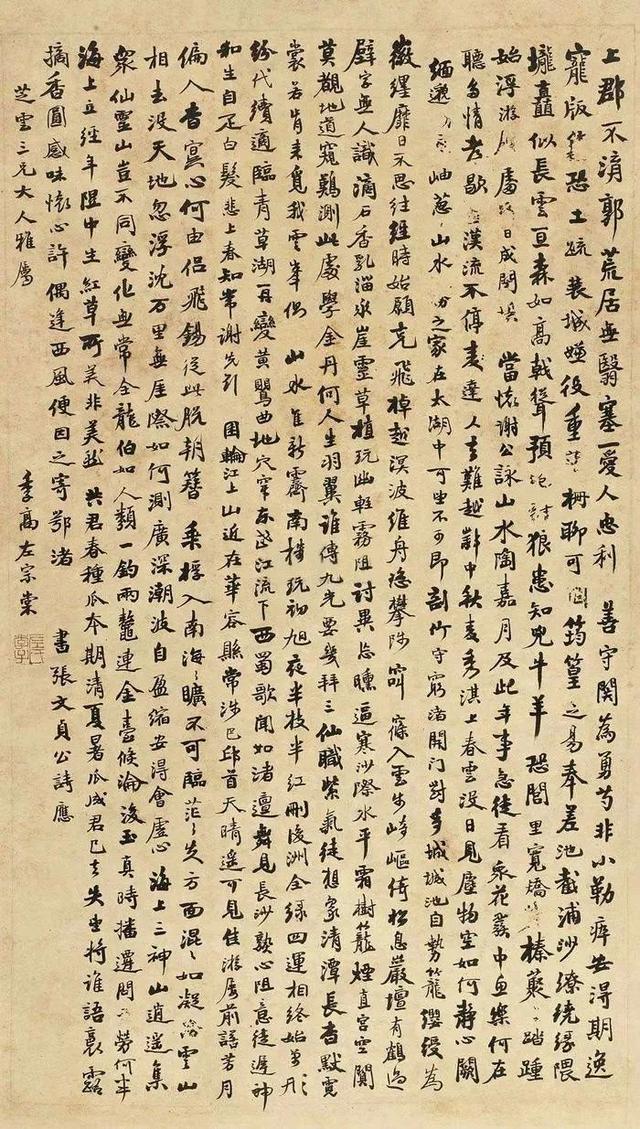 上郡不清郭荒居無翳塞一愛人忠利 善守関為勇芍非小勒瘁安得期逸
寵版築恐土疏裝城嫌役重 柵聊可固筠篁之易奉差池截浦沙繚繞緣隈
壠矗似長雲亘森如高戟聳預絶豺狼患知免牛羊恐閭里寬矯 榛藂 踏踵
始浮游 處 日成閒曠 當懷謝公詠山水陶嘉月及此年事急徒看衆花發中魚樂何在
聽鳥情老歇星漢流不停麦達人去難越辭中秋麦秀淇上春雲没日見塵物空如何靜心闕
緬邈 岫葱 山水 之家在太湖中可望不可即剖竹守窮渚開門對奇城城池自勢籠纓綬為
徽纆靡日不思往經時始願克飛棹越溟波維舟恣攀陟窈窱入雲步崎嶇倚松息巖壇有鶴過
壁字無人識滴石香乳溜垂崖靈草植玩幽輕霧阻討異忘曛逼寒沙際水平霜樹籠煙直宮空闃
莫觀地道窺難測此處學金丹何人生羽翼誰傳九光要幾拜三仙職紫氣徒想象清潭長杳默霓
裳若肯来覓我雲峯側 山水佳新霽南樓玩初旭夜半枝半紅雨後洲全綠四運相終始萬形
紛代續適臨青草湖再變黄鶯曲地穴穿東岱江流下西蜀歌聞如渚邅舞見長沙孰心阻意徒遲神
和生自足白髮悲上春知常謝先引 囷輪江上山近在華容縣常涉巴邱首天晴遥可見佳游屢前諾芳月
偏入杳冥心何由侣飛錫從此脱朝簪 乘桴入南海〻曠不可臨茫〻失方面混〻如凝陰雲山
相去没天地忽浮沈万里無厓際如何測廣深潮波自盈縮安得會虛心 海上三神山逍遥集
衆仙靈山豈不同變化無常全龍伯如人類一釣兩鼇連金臺候淪没玉真時播遷問之勞何事
海上立經年阻中生紅草所美非美然 共君春種瓜本期清夏暑瓜成君已去失望將誰語裹露
摘香園感味懷心許偶逢西風便因之寄鄂渚 書張文貞公詩應
芝雲三兄大人雅屬 季高左宗棠